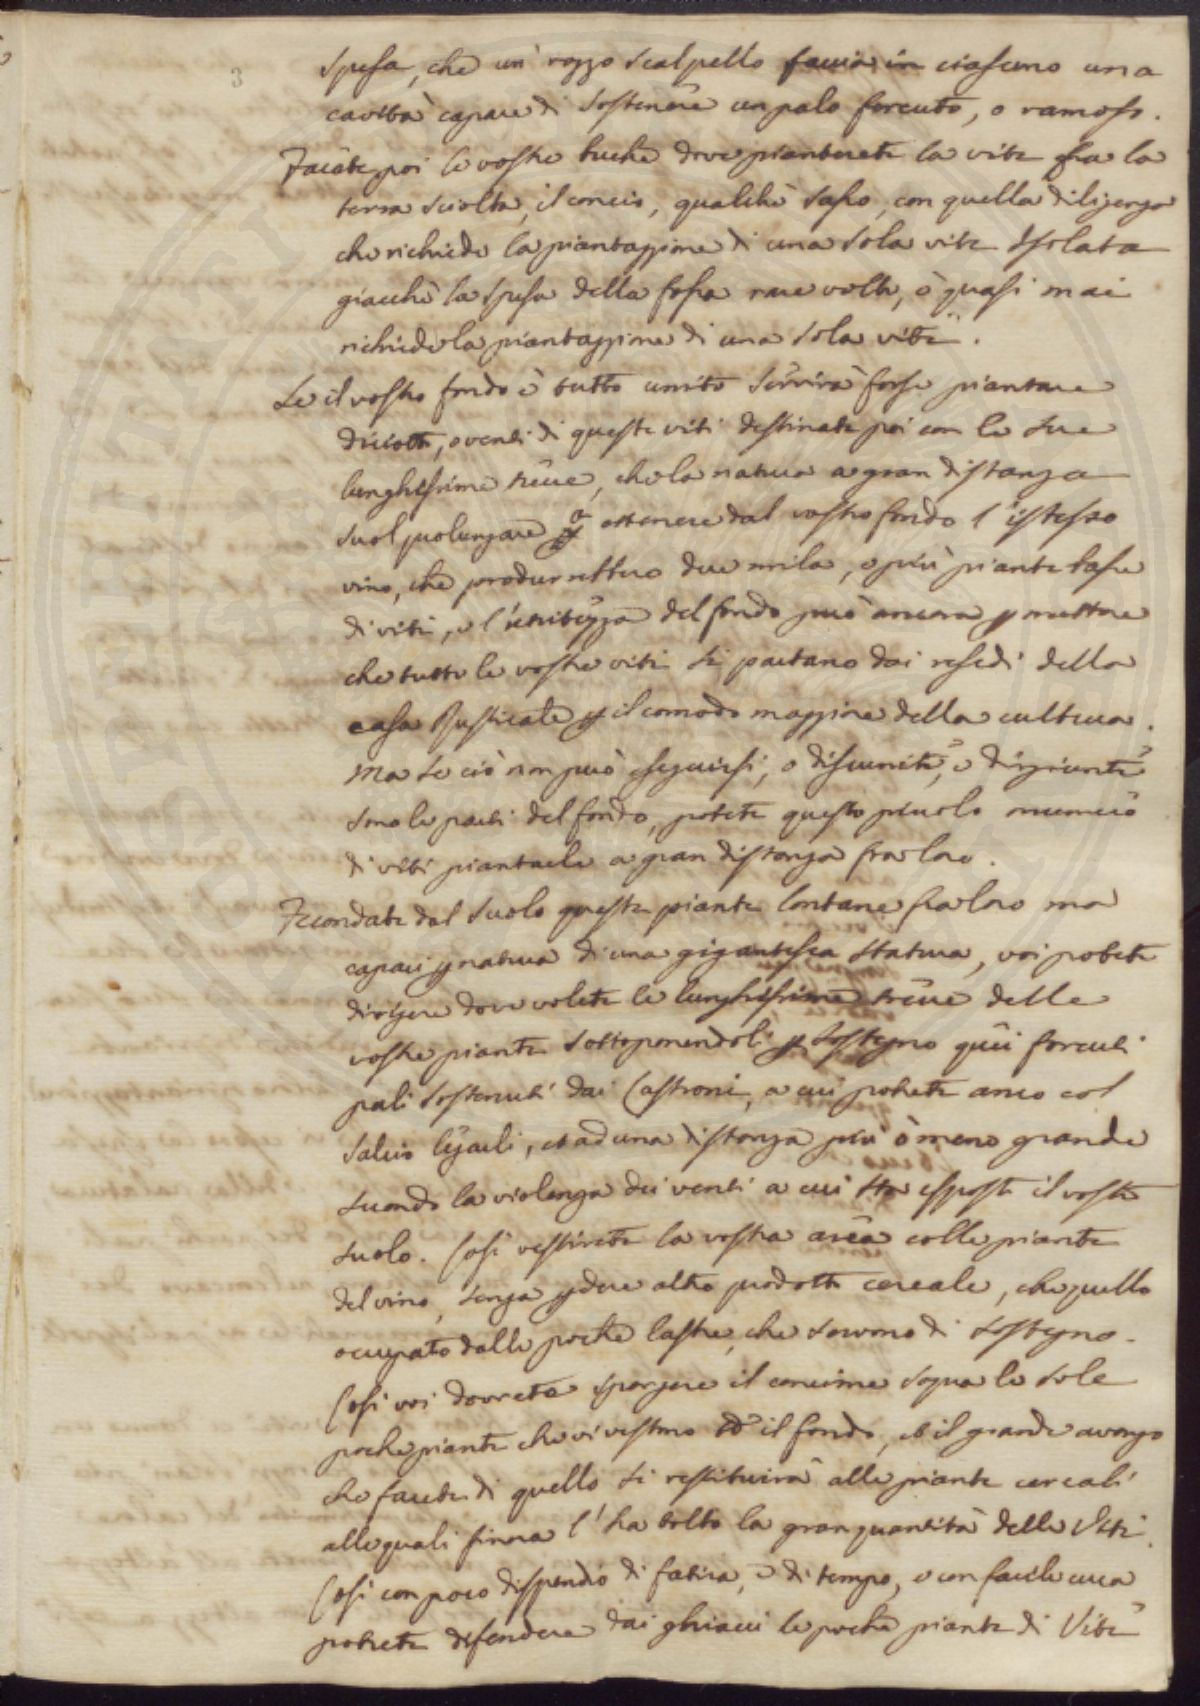 3
spesa, che un rozzo scalpello faccia in ciascuno una
cavità capace di sostenere un palo forcuto, o ramoso.
Facate poi le vostre buche dove pianterete la vite fra la
terra sciolta, il concio, qualche sasso, con quella diligenza
che richiede la piantaggione di una sola vite isolata
giacchè la spesa della fossa rare volte, ò quasi mai
richiede la piantaggione di una sola vite.
Se il vostro fondo è tutto unito servirà forse piantare
diciotto, o venti di queste viti destinate poi con le sue
lunghissime treccie, che la natura a gran distanza
suol prolungare a ottenere dal vostro fondo l'istesso
vino, che produrrebbero due mila, o più piante basse
di viti, e l'strettezza del fondo può ancora permettere
che tutte le vostre viti si partano dai resedi della
casa Rusticale per il comodo maggiore della cultura.
Ma se ciò non può eseguirsi, o disunite, e disgiunte
sono le parti del fondo, potete questo piccolo numero
di viti piantarle a gran distanza fra loro.
Fecondate dal suolo queste piante lontane fra loro ma
capaci per natura di una gigantesca statura, voi potete
dirigere dove volete le lunghissime treccie delle
vostre piante sottoponendoli per sostegno quei forcuti
pali sostenuti dai Castroni, a cui potrete anco col
salcio legarli, et ad una distanza più ò meno grande
secondo la violenza dei venti a cui sta esposto il vostro
suolo. Così vestirete la vostra area colle piante
del vino, senza perdere altro prodotto cereale, che quello
occupato dalle poche lastre, che servono di sostegno.
Così voi dovrete spargere il concime sopra le sole
poche piante che vi vestono il fondo, et il grande avanzo
che farete di quello si restituirà alle piante cereali
alle quali finora l'ha tolto la gran quantità delle Viti.
Così con poco dispendio di fatica, e di tempo, e con facile cura
potrete difendere dai ghiacci le poche piante di Vite